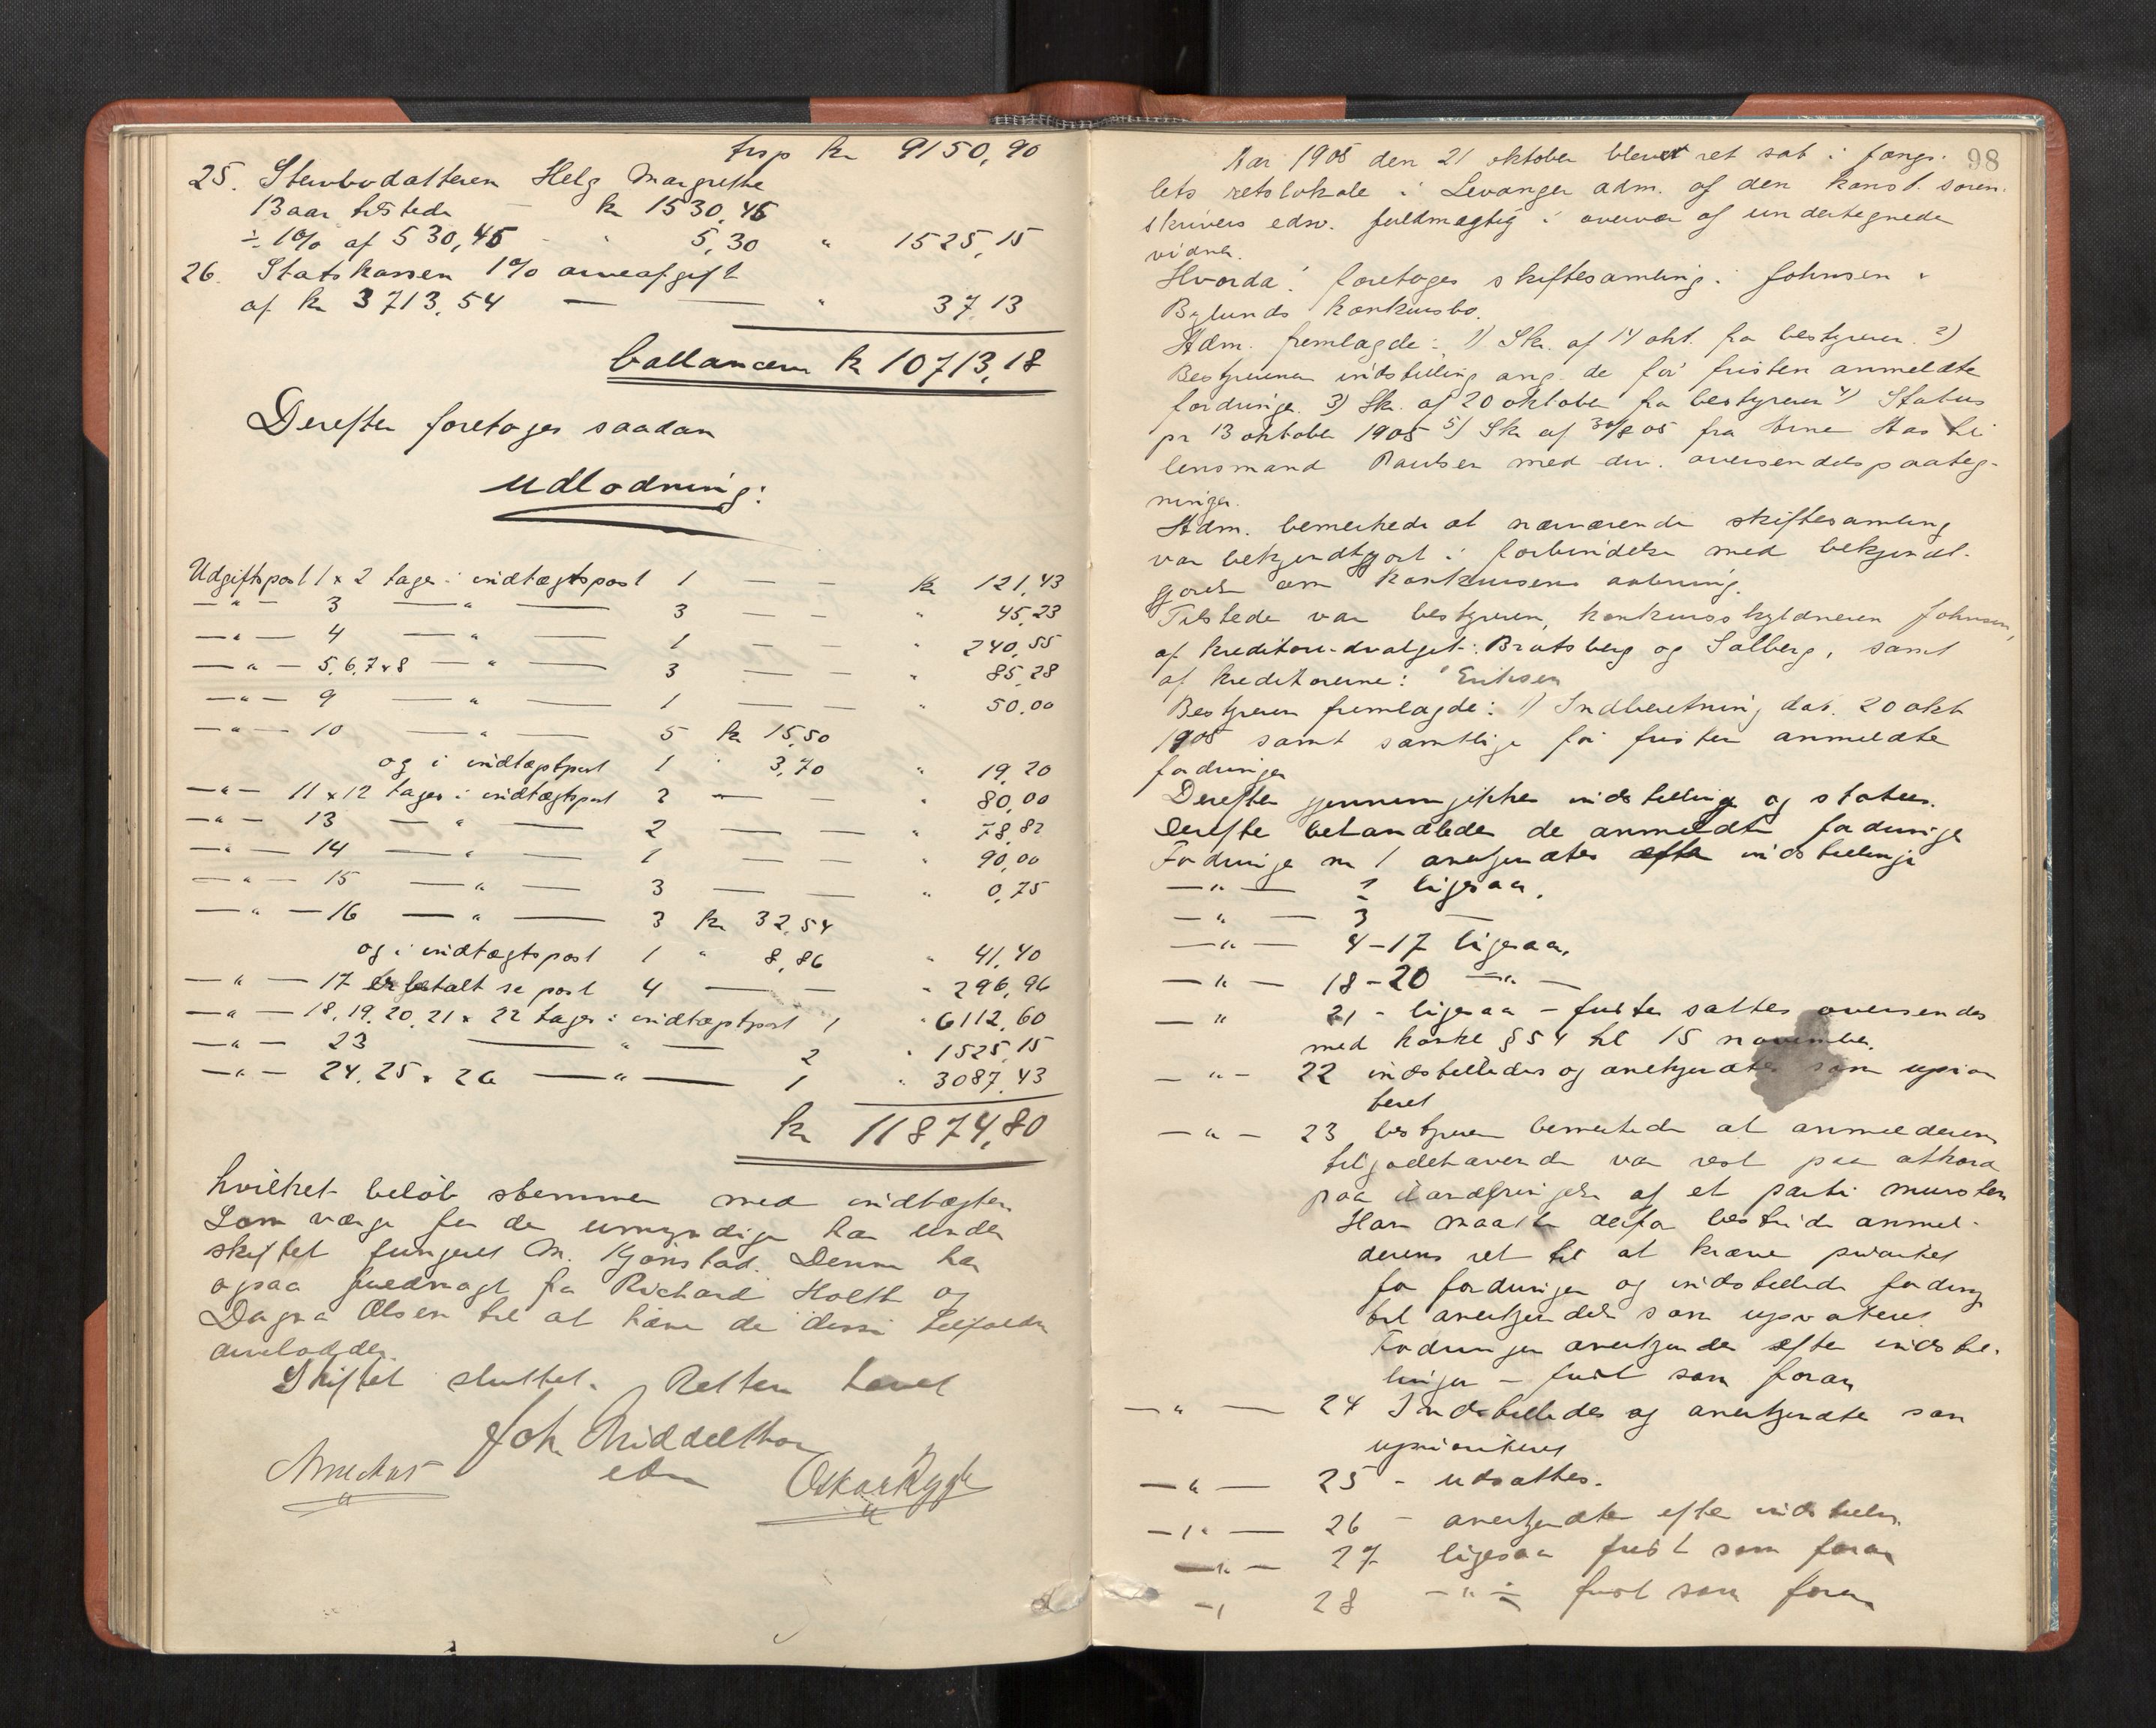 trsp kr 9150,90
25. Stervbodatteren Helg Margrethe
13 aar tilstede — kr 1530,45
÷ 1% af 530,45 - " 5,30 " 1525,15
26. Statskassen 1% arveafgift
af kr 3713,54 — — " 37,13
ballancen kr 10713,18
Derefter foretoges saadan
udlodning:
Udgiftspost 1 & 2 tages i indtægtspost 1 — — kr 121,43
—"— 3 —"— 3 — — " 45,23
—"— 4 —"— 1 — — " 240,55
—"— 5,6,7 & 8 —"— 3 — — " 85,28
—"— 9 —"— 1 — — " 50,00
—"— 10 —"— 5 kr 15,50
og i indtægtspost 1 " 3,70 " 19,20
—"— 11 & 12 tages i indtægtspost 2 — — " 80,00
—"— 13 —"— 2 — — " 78,82
—"— 14 —"— 1 — — " 90,00
—"— 15 —"— 3 — — " 0,75
—"— 16 —"— 3 kr 32,54
og i indtægtspost 1 " 8,86 " 41,40
—"— 17 er betalt se post 4 — — " 296,96
—"— 18,19,20,21 & 22 tages i indtægtspost 1 " 6112,60
—"— 23 —"— 2 " 1525,15
—"— 24,25 & 26 —"— 1 " 3087,43
kr 11874,80
hvilket beløb stemmer med indtægten
Som værge for de umyndige har under
skiftet fungeret M. Gjønstad. Denne har
ogsaa fuldmagt fra Richard Holth og
Dagna Olsen til at hæve de dem tilfaldne
arvelodder.
Skiftet sluttet. Retten hævet
Joh. Middelthon
edsv
Oskar Rygh
98
Aar 1905 den 21 oktober blev ret sat i fængs-
lets retslokale i Levanger adm. af den konst. soren-
skrivers edsv. fuldmægtig i overvær af undertegnede
vidner.
Hvorda: foretoges skiftesamling i Johnsen &
Bylunds konkursbo.
Adm. fremlagde: 1) Skr. af 14 okt. fra bestyreren. 2)
Bestyrerens indstilling ang. de før fristen anmeldte
fordringer. 3) Skr. af 20 oktober fra bestyreren 4) Status
pr 13 oktober 1905 5) Skr af 30/8 05 fra Arne Aas til
lensmand Paulsen med div. oversendelsespaateg-
ninger.
Adm. bemerkede at nærværende skiftesamling
var bekjendtgjort i forbindelse med bekjendt-
gjørelse om konkursens aabning.
Tilstede var bestyreren, konkursskyldneren Johnsen,
af kreditorudvalget: Bratsberg og Salberg, samt
af kreditorerne: Eriksen
Bestyreren fremlagde: 1) Indberetning dat. 20 okt
1905 samt samtlige før fristen anmeldte
fordringer
Derefter gjennemgikkes indstilling og status.
Derefter behandledes de anmeldte fordringer
Fordringer nr 1 anerkjendtes efter indstilling
—"— 2 ligesaa.
—"— 3 —
—"— 4-17 ligesaa.
—"— 18-20 —"—
—"— 21 - ligesaa - frister sattes oversendes
med konkl § 54 til 15 november.
—"— 22 indstilledes og anerkjendtes som uprior
teret
—"— 23 bestyreren bemerkede at anmelderens
tilgodehavende var rest paa akkord
paa ilandbringelse af et parti mursten
Han maatte derfor bestride anmel-
derens ret til at kræve prioritet
for fordringen og indstillede fordring
til anerkjendelse som uprioriteret
Fordringen anerkjendes efter indstil-
lingen - frist som foran
—"— 24 Indstilledes og anerkjendtes som
uprioriteret
—"— 25 - udsattes.
—"— 26 - anerkjendtes efter indstilln
—"— 27 ligesaa frist som foran
—"— 28 —"— frist som foran